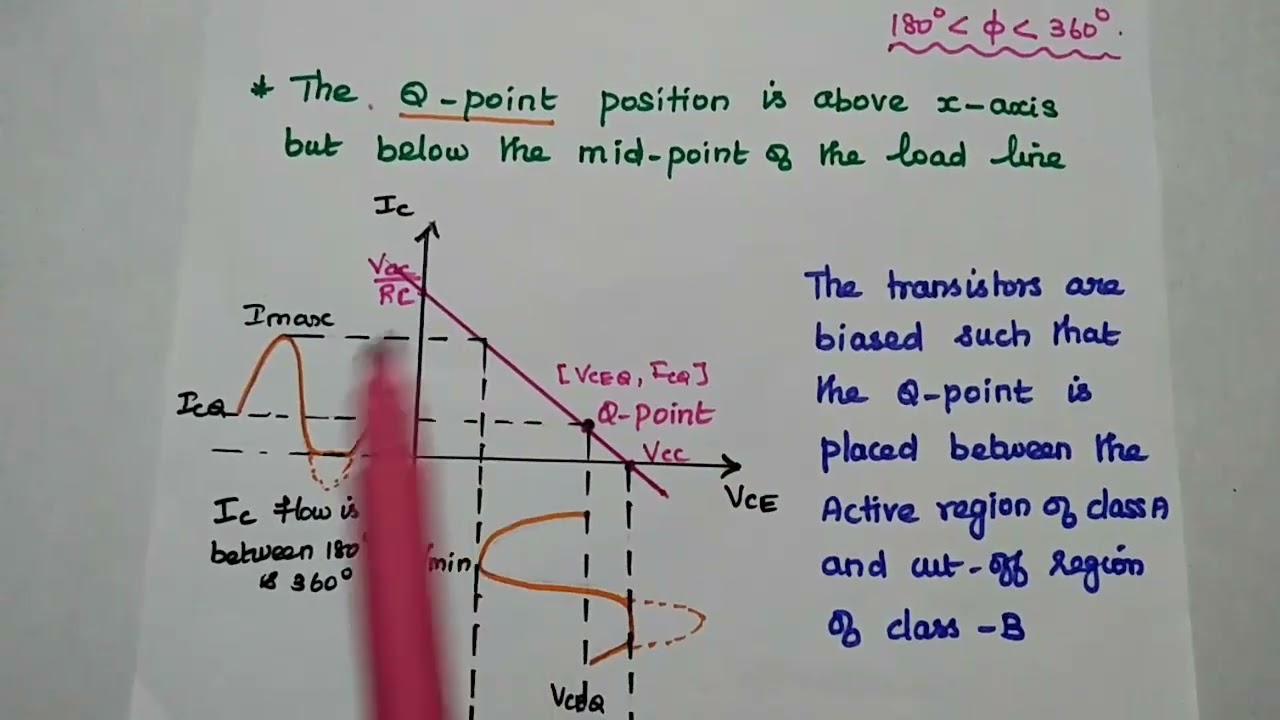 180° < ϕ < 360°.
* The Q-point position is above x-axis
but below the mid-point of the load line
Ic
Vcc
RC
Imax
[VCEQ, ICQ]
ICQ
Q-point
Vcc
VCE
Ic flow is
between 180°
is 360°
min
VCEQ
The transistors are
biased such that
the Q-point is
placed between the
Active region of class A
and cut-off region
of class -B